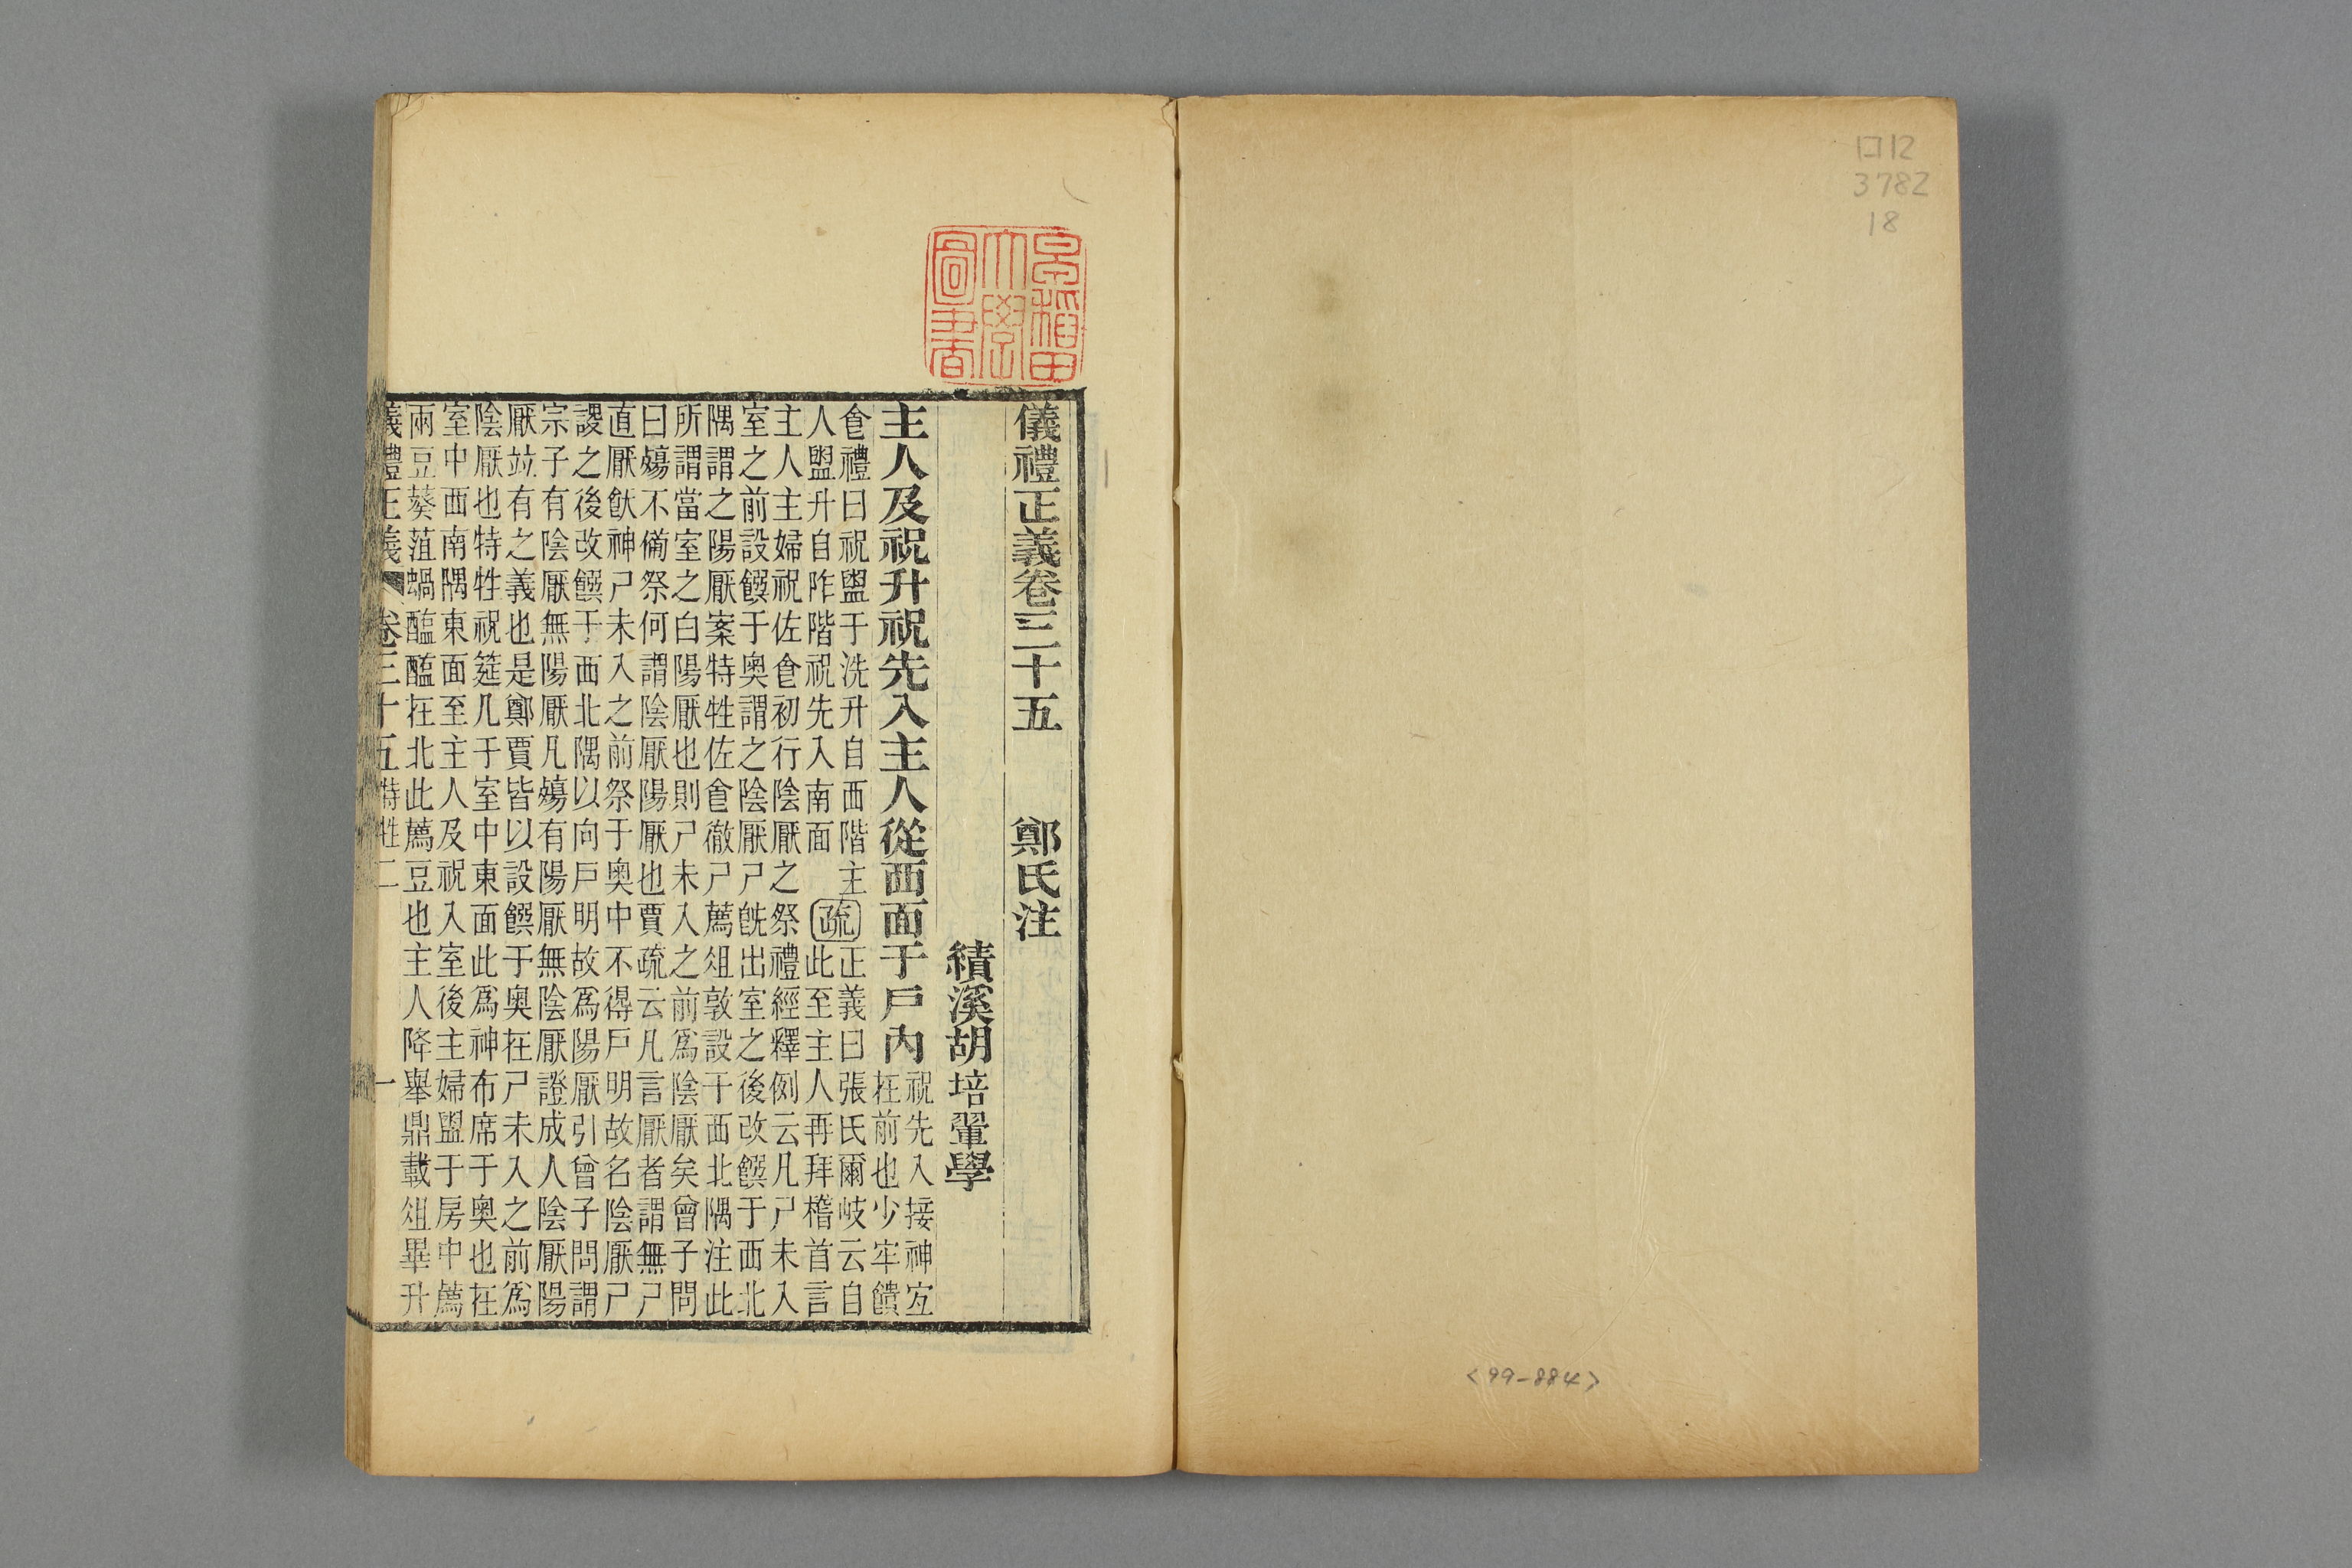 ロ12
3782
18
<99-884>
早稻田
大學
圖書
儀禮正義卷三十五　鄭氏注
績溪胡培翬學
主人及祝升祝先入主人從西面于戶內
祝先入接神宐
在前也少牢饋
食禮曰祝盥于洗升自西階主
人盥升自阼階祝先入南面
疏
正義曰張氏爾岐云自
此至主人再拜稽首言
主人主婦祝佐食初行陰厭之祭禮經釋例云凡尸未入
室之前設饌于奧謂之陰厭尸旣出室之後改饌于西北
隅謂之陽厭案特牲佐食徹尸薦俎敦設于西北隅注此
所謂當室之白陽厭也則尸未入之前爲陰厭矣曾子問
曰殤不備祭何謂陰厭陽厭也賈疏云凡言厭者謂無尸
直厭飫神尸未入之前祭于奧中不得戶明故名陰厭尸
謖之後改饌于西北隅以向戶明故爲陽厭引曾子問謂
宗子有陰厭無陽厭凡殤有陽厭無陰厭證成人陰厭陽
厭竝有之義也是鄭賈皆以設饌于奧在尸未入之前爲
陰厭也特牲祝筵几于室中東面此爲神布席于奧也在
室中西南隅東面至主人及祝入室後主婦盥于房中薦
兩豆葵菹蝸醢醢在北此薦豆也主人降舉鼎載俎畢升
儀禮正義　卷三十五特牲二　一